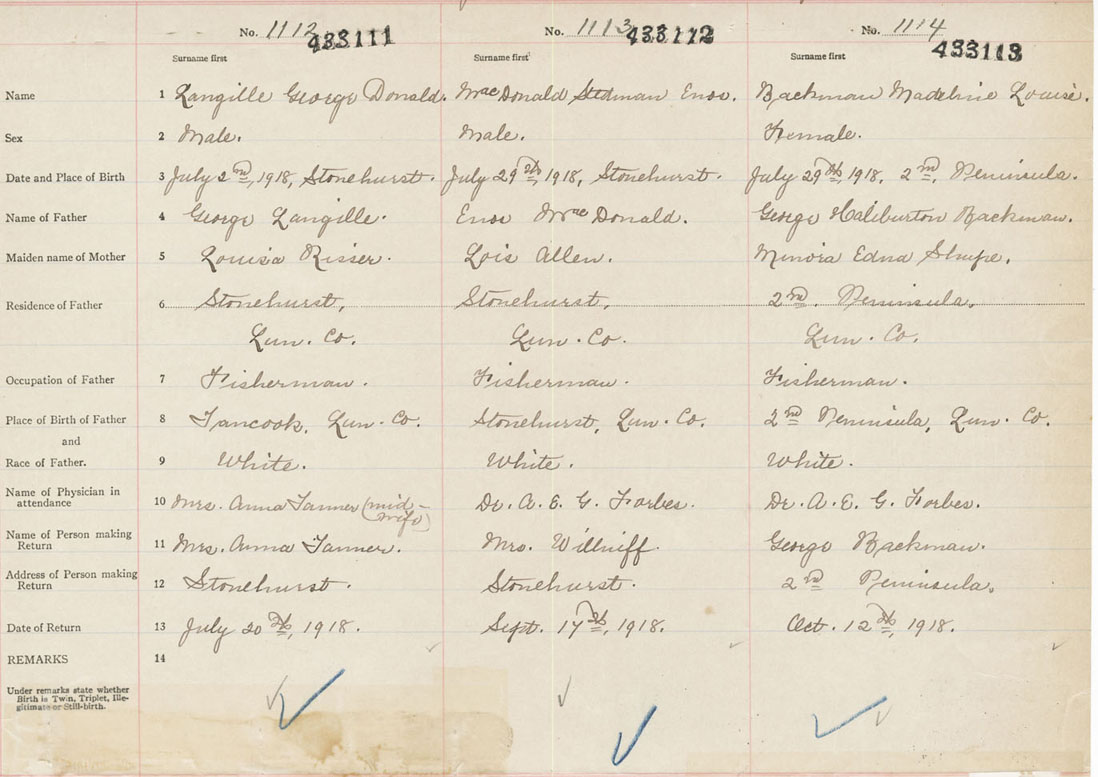 No. 1112 433111 No. 1113 433112 No. 1114 433113
Surname first Surname first Surname first
Name 1 Langille George Donald. MacDonald Stedman Enos. Backman Madeline Louise.
Sex 2 Male. Male. Female.
Date and Place of Birth 3 July 2nd, 1918, Stonehurst. July 29th, 1918, Stonehurst. July 29th, 1918, 2nd, Peninsula.
Name of Father 4 George Langille. Enos MacDonald. George Haliburton Backman.
Maiden name of Mother 5 Louisa Risser. Lois Allen. Minora Edna Shupe.
Residence of Father 6 Stonehurst, Stonehurst, 2nd. Peninsula.
Lun. Co. Lun. Co. Lun. Co.
Occupation of Father 7 Fisherman. Fisherman. Fisherman.
Place of Birth of Father 8 Tancook, Lun. Co. Stonehurst, Lun. Co. 2nd Peninsula, Lun. Co.
and
Race of Father. 9 White. White. White.
Name of Physician in
attendance 10 Mrs. Anna Tanner (mid-
wife) Dr. A. E. G. Forbes. Dr. A. E. G. Forbes.
Name of Person making
Return 11 Mrs. Anna Tanner. Mrs. George Backman.
Address of Person making
Return 12 Stonehurst. Stonehurst. 2nd Peninsula.
Date of Return 13 July 20th, 1918. Sept. 17th, 1918. Oct. 12th, 1918.
REMARKS 14
Under remarks state whether
Birth is Twin, Triplet, Ille-
gitimate or Still-birth.